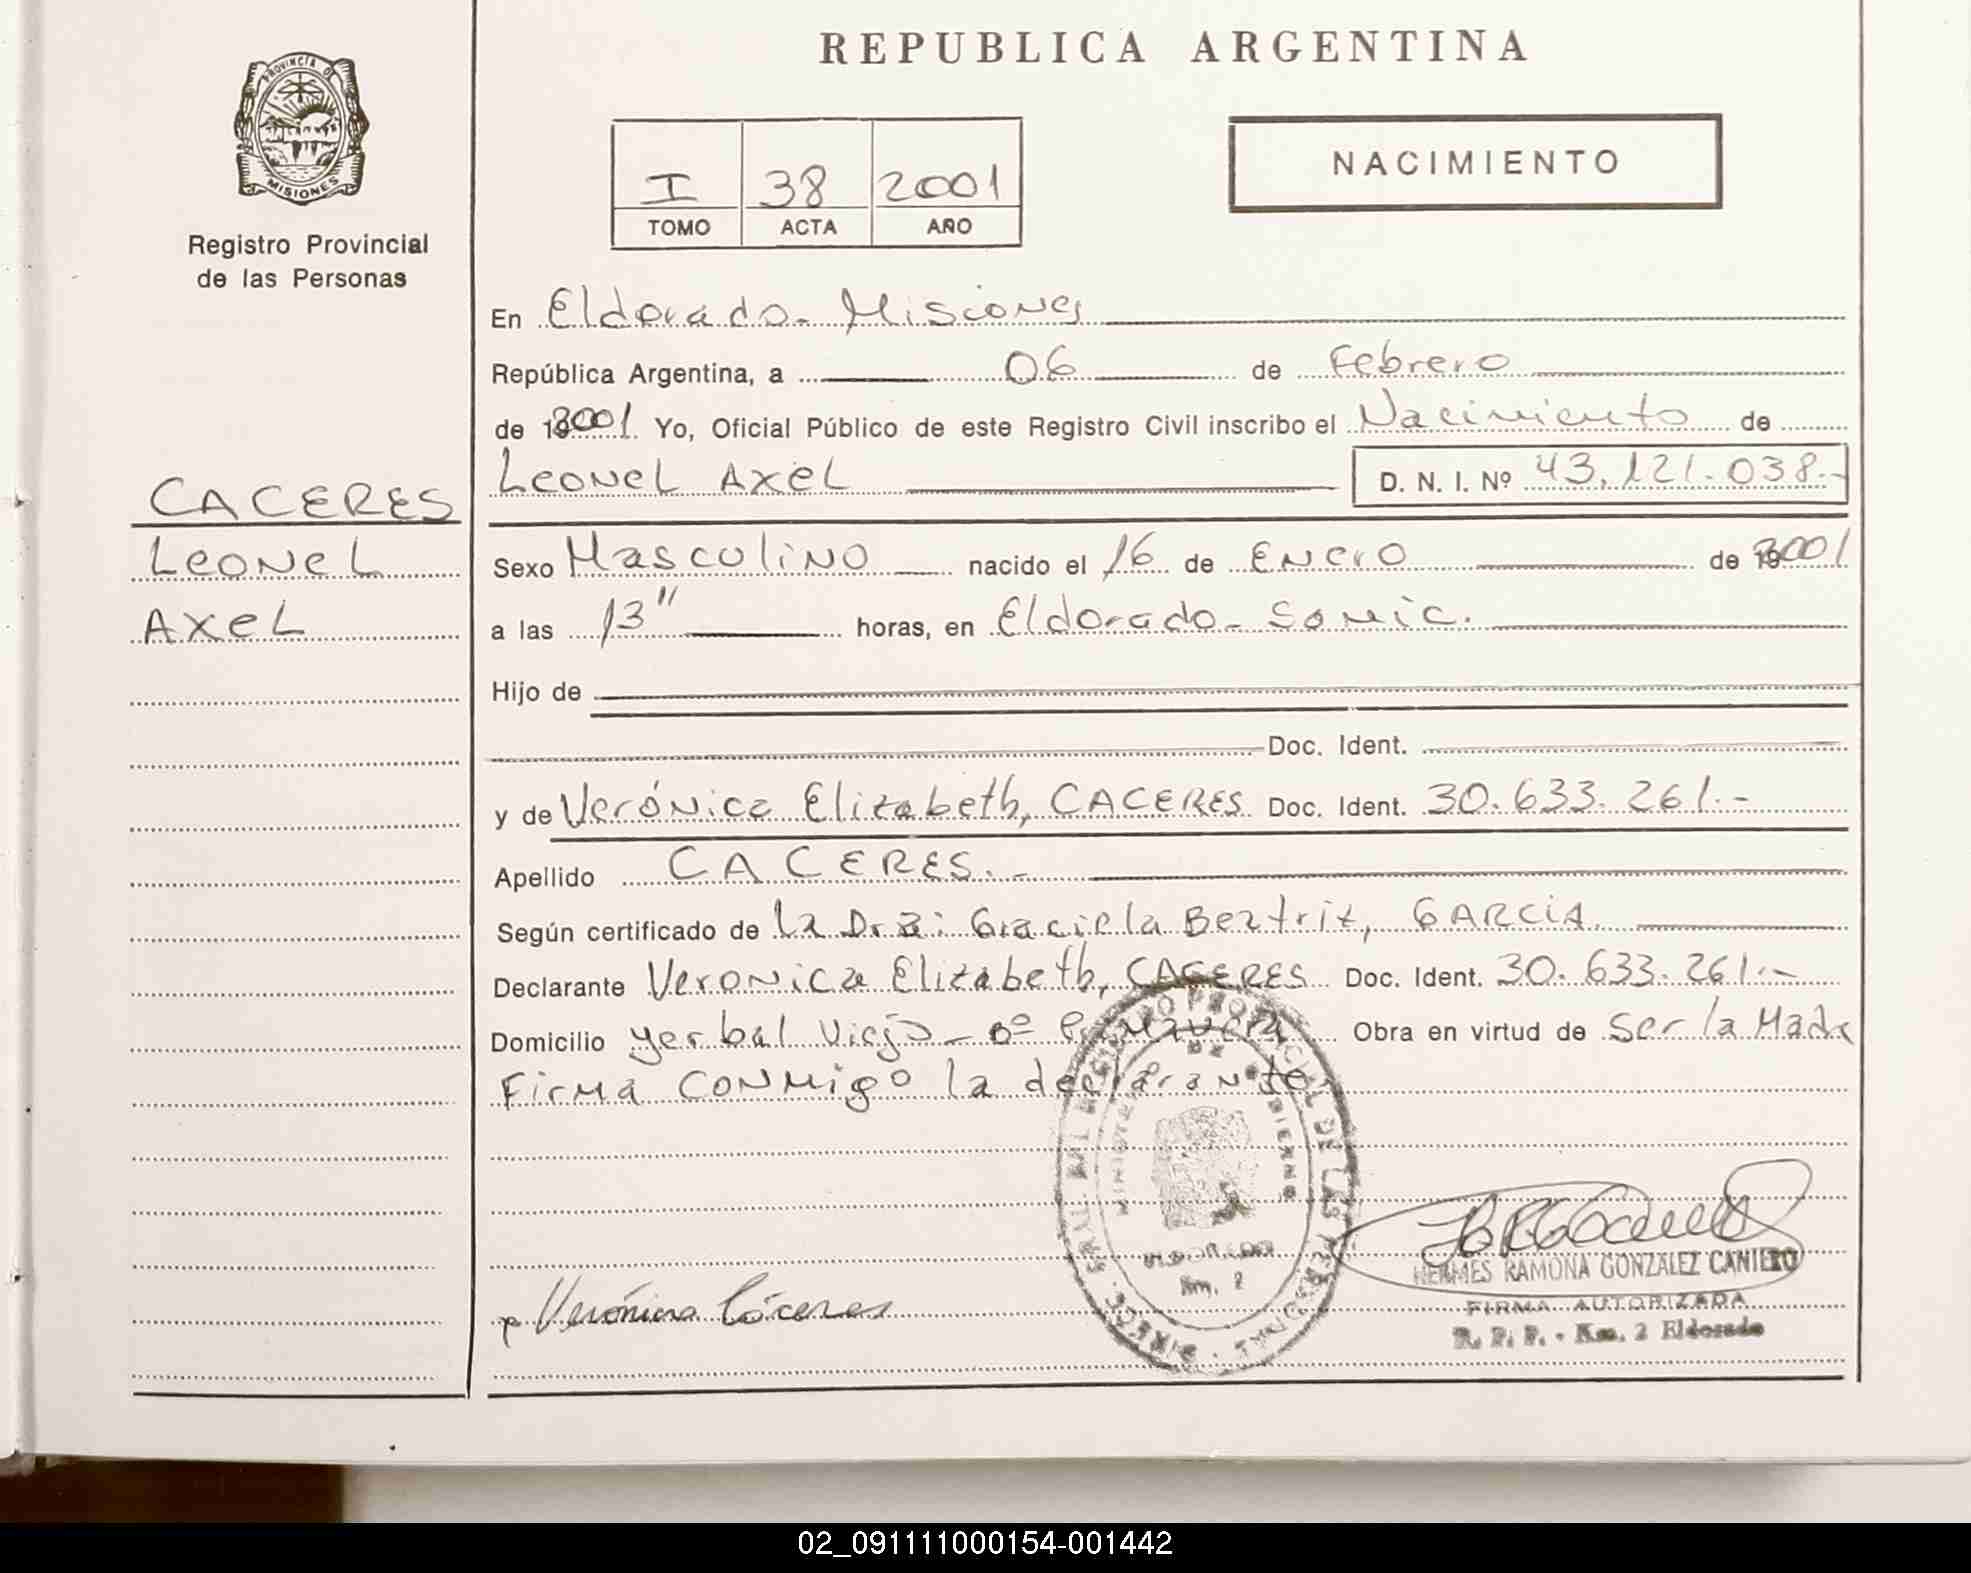 REPUBLICA ARGENTINA
PROVINCIA DE
MISIONES
Registro Provincial
de las Personas
I 38 2001
TOMO ACTA AÑO
NACIMIENTO
En Eldorado - Misiones
República Argentina, a 06 de Febrero
de 2001. Yo, Oficial Público de este Registro Civil inscribo el Nacimiento de
Leonel Axel D. N. I. Nº 43.121.038.-
CACERES
Leonel
Axel
Sexo Masculino nacido el 16 de Enero de 2001
a las 13" horas, en Eldorado - Somic.
Hijo de
Doc. Ident.
y de Verónica Elizabeth, CACERES Doc. Ident. 30.633.261.-
Apellido CACERES.-
Según certificado de la Dra: Graciela Beatriz, GARCIA
Declarante Veronica Elizabeth, CACERES Doc. Ident. 30.633.261.-
Domicilio Yerbal Viejo - Bº Primavera Obra en virtud de Ser la Madre
Firma conmigo la declarante
DIRECC. GRAL. DEL REGISTRO PROVINCIAL DE LAS PERSONAS
MINISTERIO DE GOBIERNO
ELDORADO
Km. 2
Verónica Cáceres
HERMES RAMONA GONZALEZ CANTERO
FIRMA AUTORIZADA
R. P. P. - Km. 2 Eldorado
02_091111000154-001442